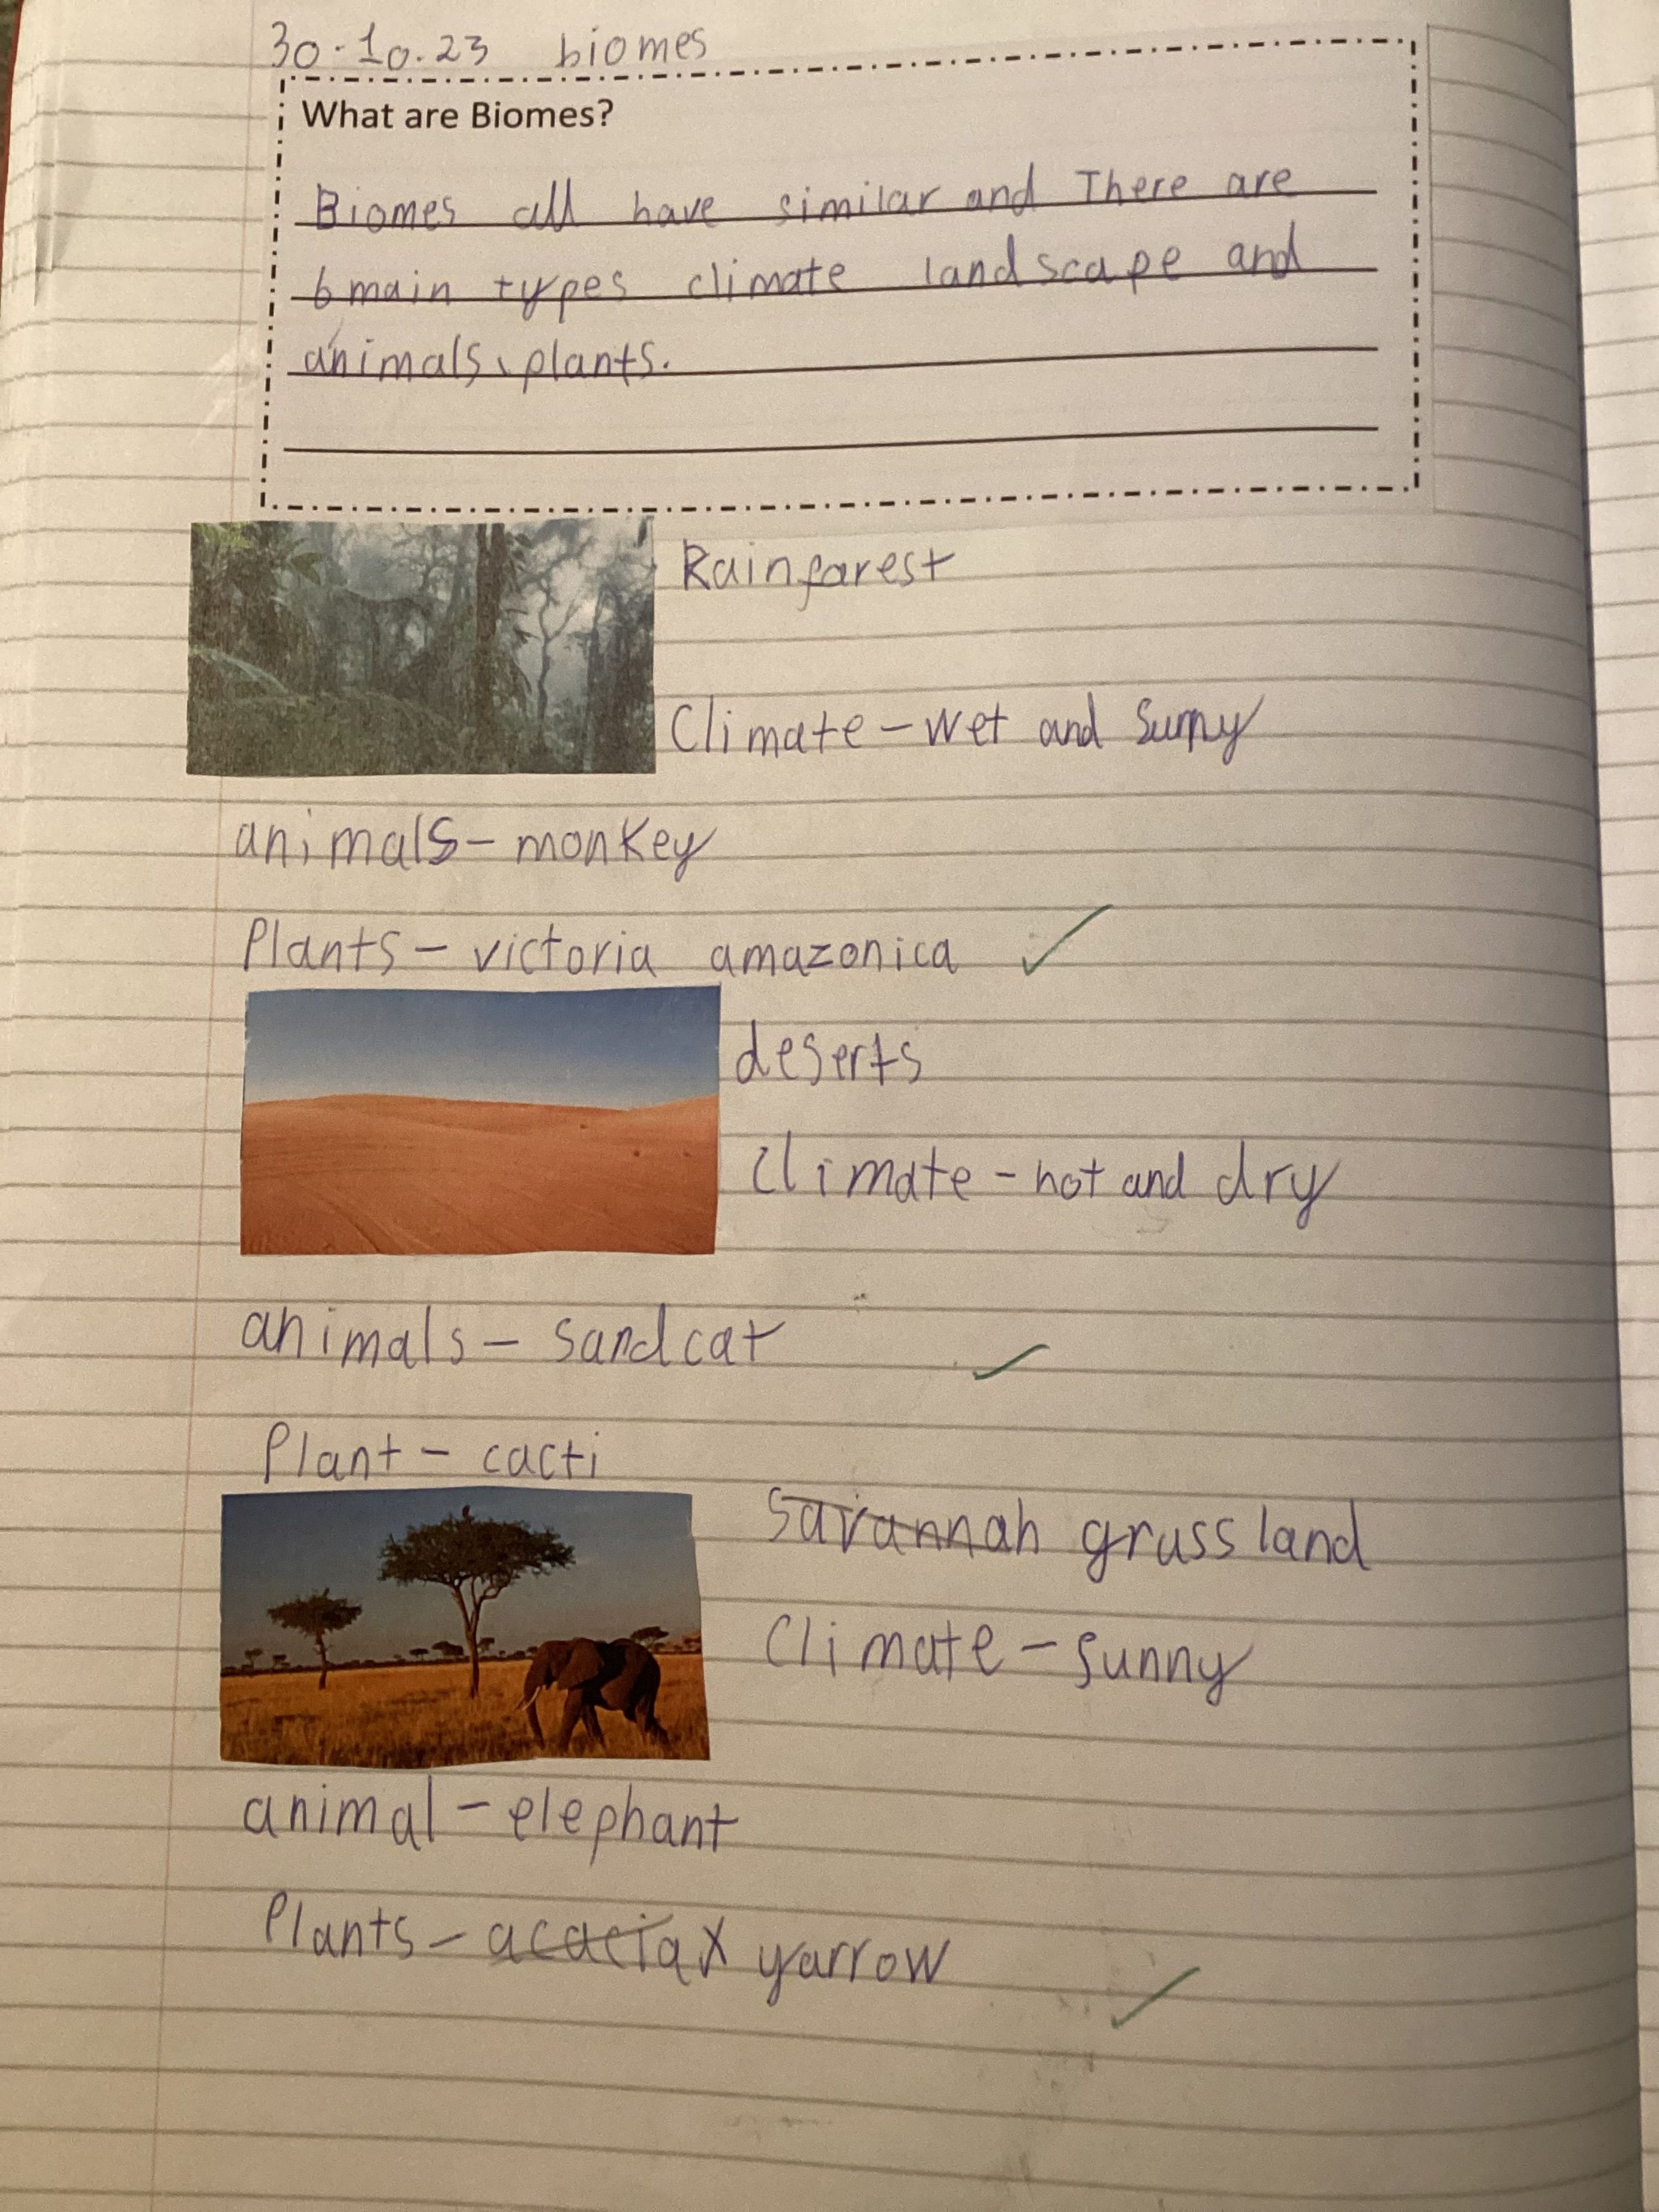 30.10.23 biomes
What are Biomes?
Biomes all have similar and There are
6 main types climate landscape and
animals, plants.
Rainfarest
Climate - wet and Sunny
animals - monkey
Plants - victoria amazonica
deserts
Climate - hot and dry
animals - sand cat
Plant - cacti
Savannah grassland
Climate - sunny
animal - elephant
Plants - acacia x yarrow